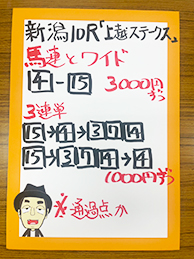 新潟10R「上越ステークス」
馬連とワイド
4-15 3000円ずつ
3連単
15→4→3 7 14
15→3 7 14→4
1000円ずつ
※通過点か